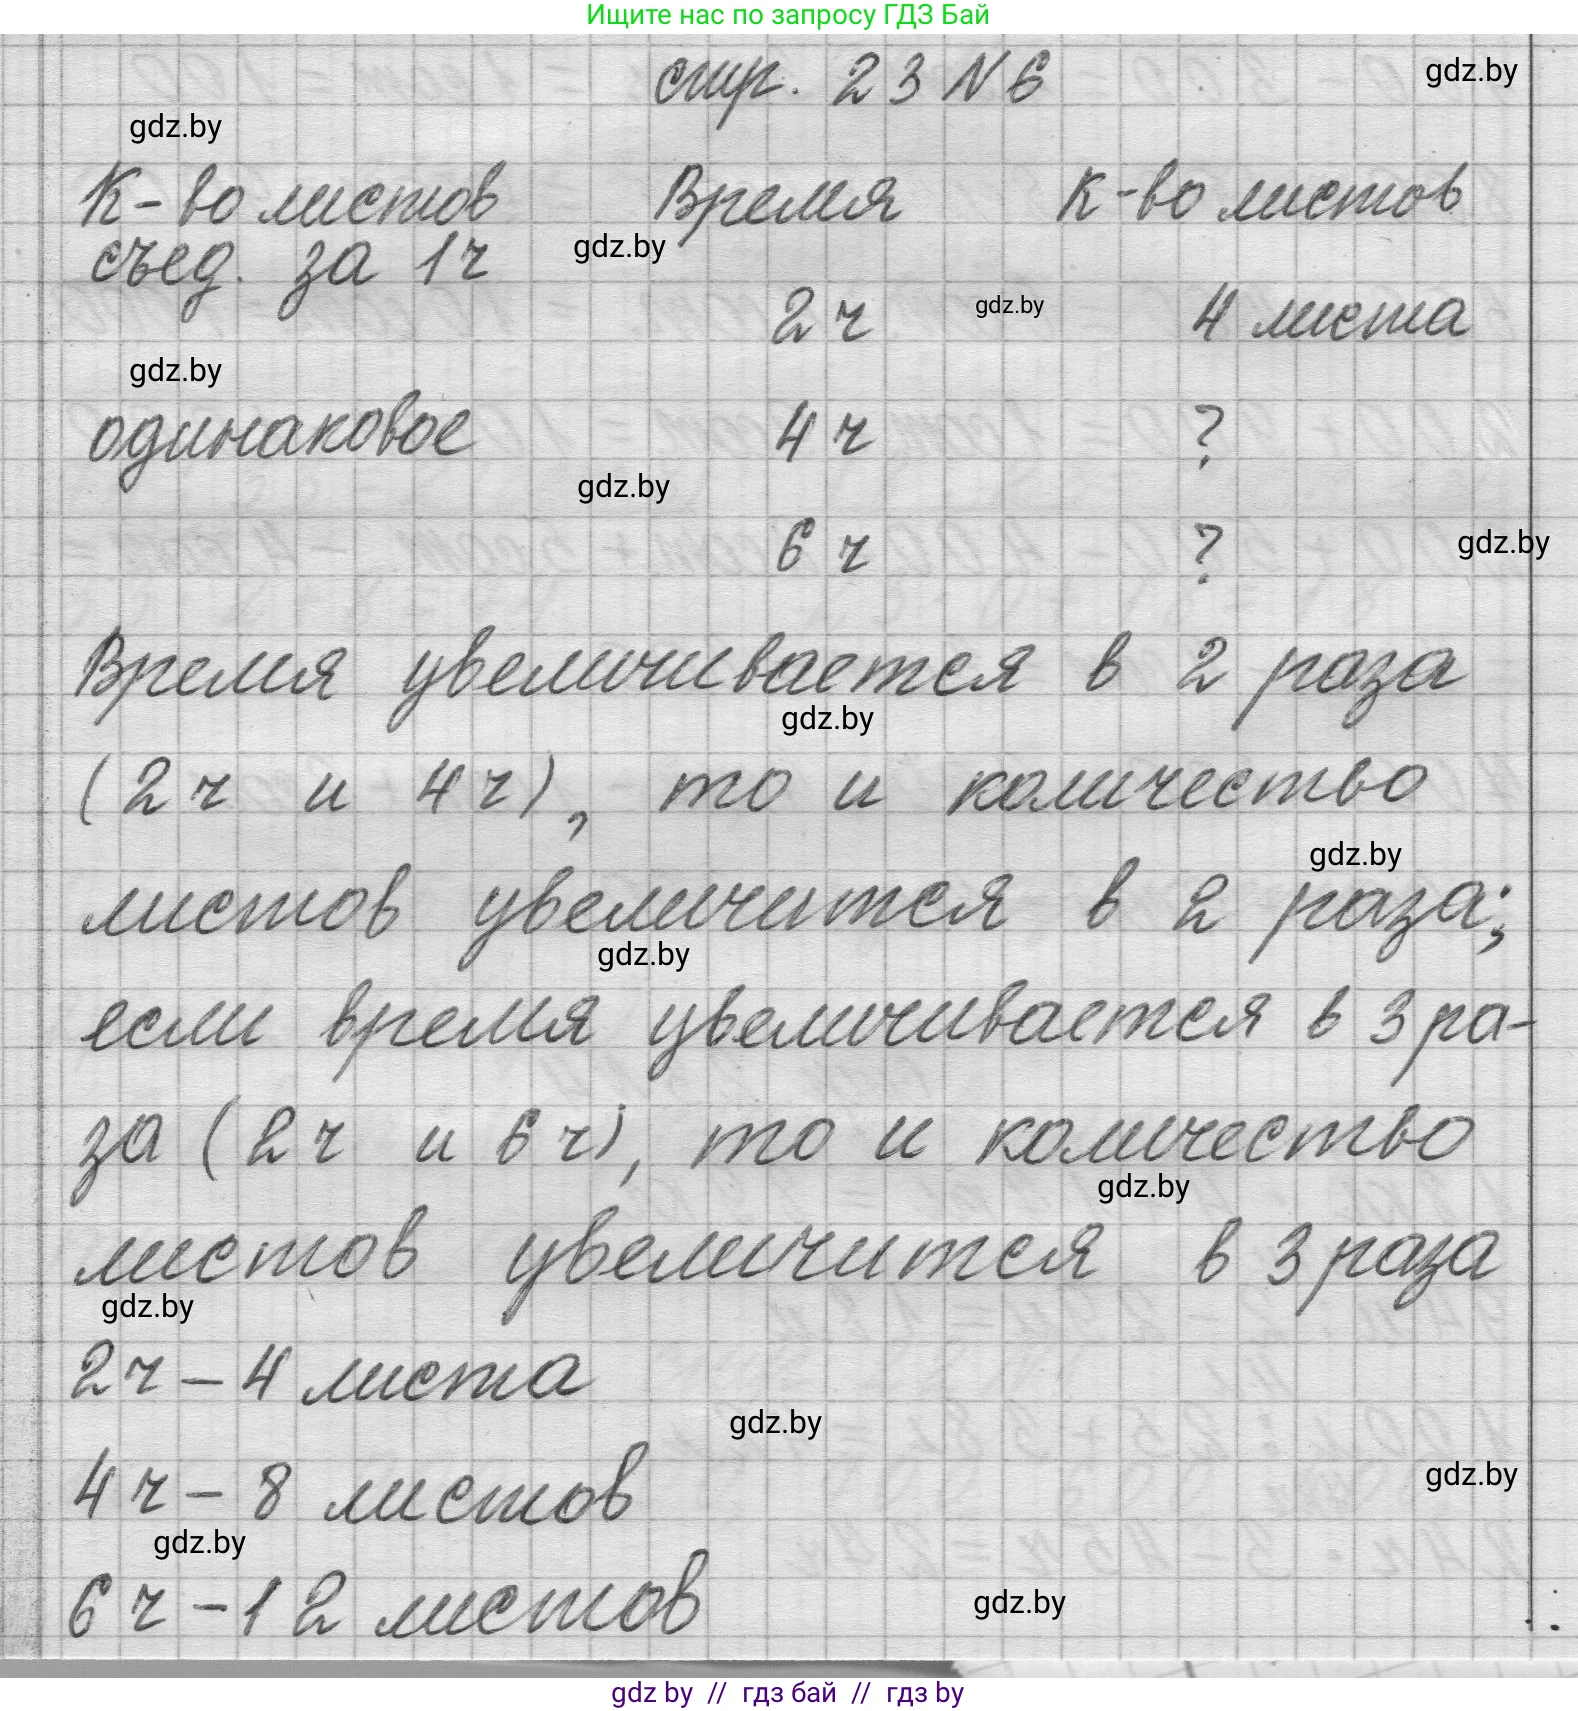 Ищите нас по запросу ГДЗ Бай
стр. 23 N 6
gdz.by
gdz.by
К-во листов Время К-во листов
съед. за 1ч
gdz.by
2 ч gdz.by 4 листа
gdz.by
одинаковое 4 ч ?
gdz.by
6 ч ?
gdz.by
Время увеличивается в 2 раза
gdz.by
(2ч и 4ч), то и количество
gdz.by
листов увеличится в 2 раза;
gdz.by
если время увеличивается в 3 ра-
за (2ч и 6ч), то и количество
gdz.by
листов увеличится в 3 раза
gdz.by
2ч – 4 листа
gdz.by
4ч – 8 листов
gdz.by
gdz.by
6ч – 12 листов
gdz.by
gdz by // гдз бай // гдз by